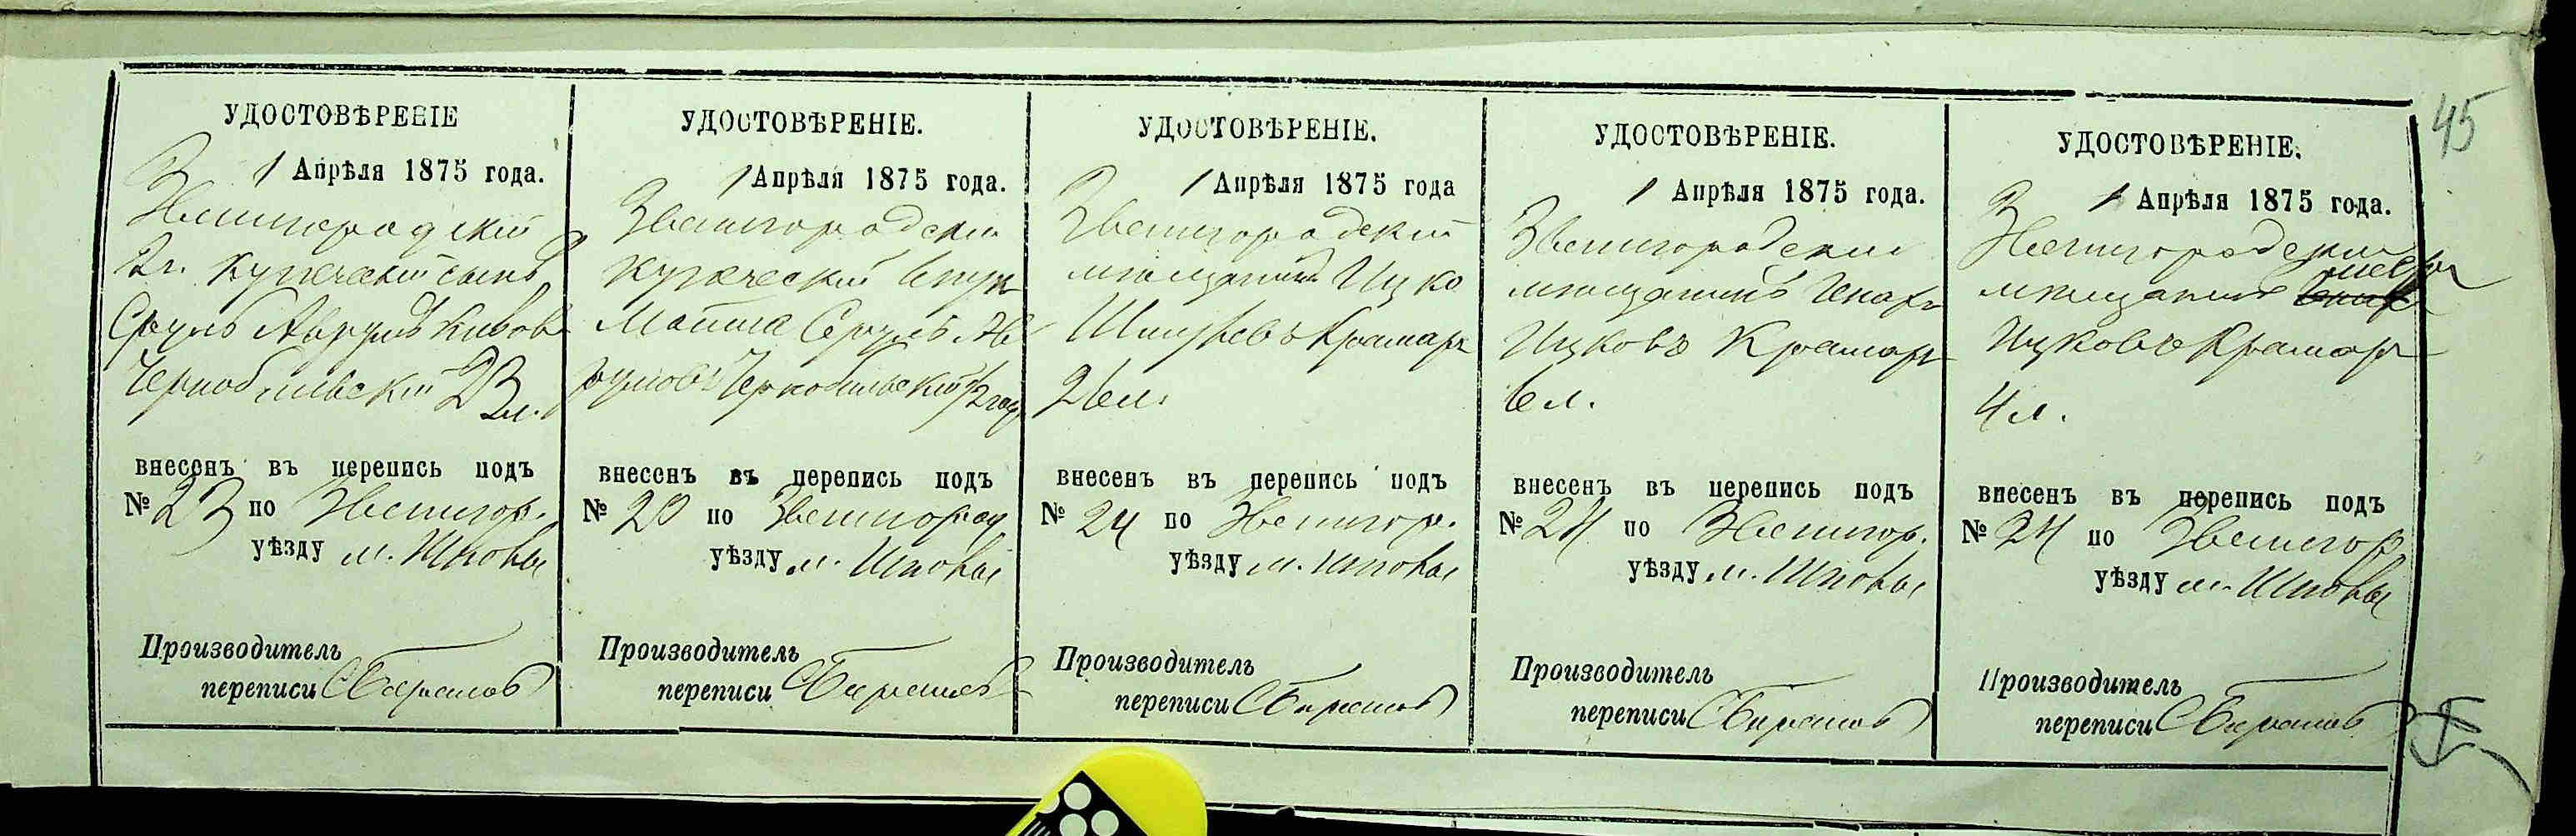 45
УДОСТОВѢРЕНІЕ
1 Апрѣля 1875 года.
Звенигородскій
2 г. купеческій сынъ
Сруль Аврумъ
Чернобильскій 23 л.
внесенъ въ перепись подъ
№ 23 по Звенигор.
уѣзду м. Шпола
Производитель
переписи
УДОСТОВѢРЕНІЕ.
1 Апрѣля 1875 года.
Звенигородскій
купеческій внук
Сруль Ав
румовъ Чернобильскій 2 год
внесенъ въ перепись подъ
№ 23 по Звенигород
уѣзду м. Шпола
Производитель
переписи
УДОСТОВѢРЕНІЕ.
1 Апрѣля 1875 года
Звенигородскій
мѣщанинъ Ицко
Крамар
26 л.
внесенъ въ перепись подъ
№ 24 по Звенигор.
уѣзду м. Шпола
Производитель
переписи
УДОСТОВѢРЕНІЕ.
1 Апрѣля 1875 года.
Звенигородскій
мѣщанинъ
Ицковъ Крамар
6 л.
внесенъ въ перепись подъ
№ 24 по Звенигор.
уѣзду м. Шпола
Производитель
переписи
УДОСТОВѢРЕНІЕ.
1 Апрѣля 1875 года.
Звенигородскій
мѣщанинъ
Ицковъ Крамар
4 л.
внесенъ въ перепись подъ
№ 24 по Звенигор.
уѣзду м. Шпола
Производитель
переписи